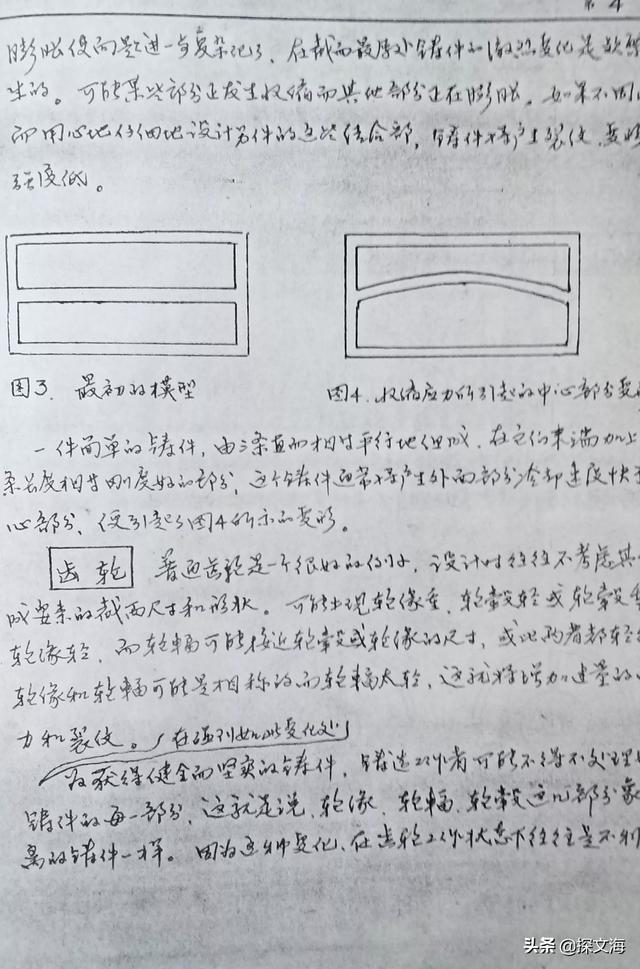 第 4
膨胀使问题进一步复杂化了。在截面最厚处铸件的激烈变化是放
生的。可能某些部分正发生收缩而其他部分正在膨胀。如果不周
而用心地仔细地设计另件的这些结合部，铸件将产生裂纹、变形
强度低。
图3. 最初的模型
图4. 收缩应力所引起的中心部分变
一件简单的铸件，由三条直的相对平行地组成，在它们末端加上
条长度相对刚度好的部分，这个铸件通常将产生外面部分冷却速度快于
心部分，便引起了图4所示的变形。
齿 轮 普通齿轮是一个很好的例子，设计时往往不考虑其
成要素的截面尺寸和形状。可能出现轮缘重，轮毂轻或轮毂重
轮缘轻，而轮辐可能接近轮毂或轮缘的尺寸，或比两者都轻
轮缘和轮辐可能是相称的而轮辐太轻，这就将增加过量的
力和裂纹。在遇到如此变化处
为获得健全而坚实的铸件，铸造工作者可能不得不处理
铸件的每一部分，这就是说，轮缘、轮辐、轮毂这几部分象
离的铸件一样。因为这种变化，在齿轮工作状态下往往是不利
头条 @探文海